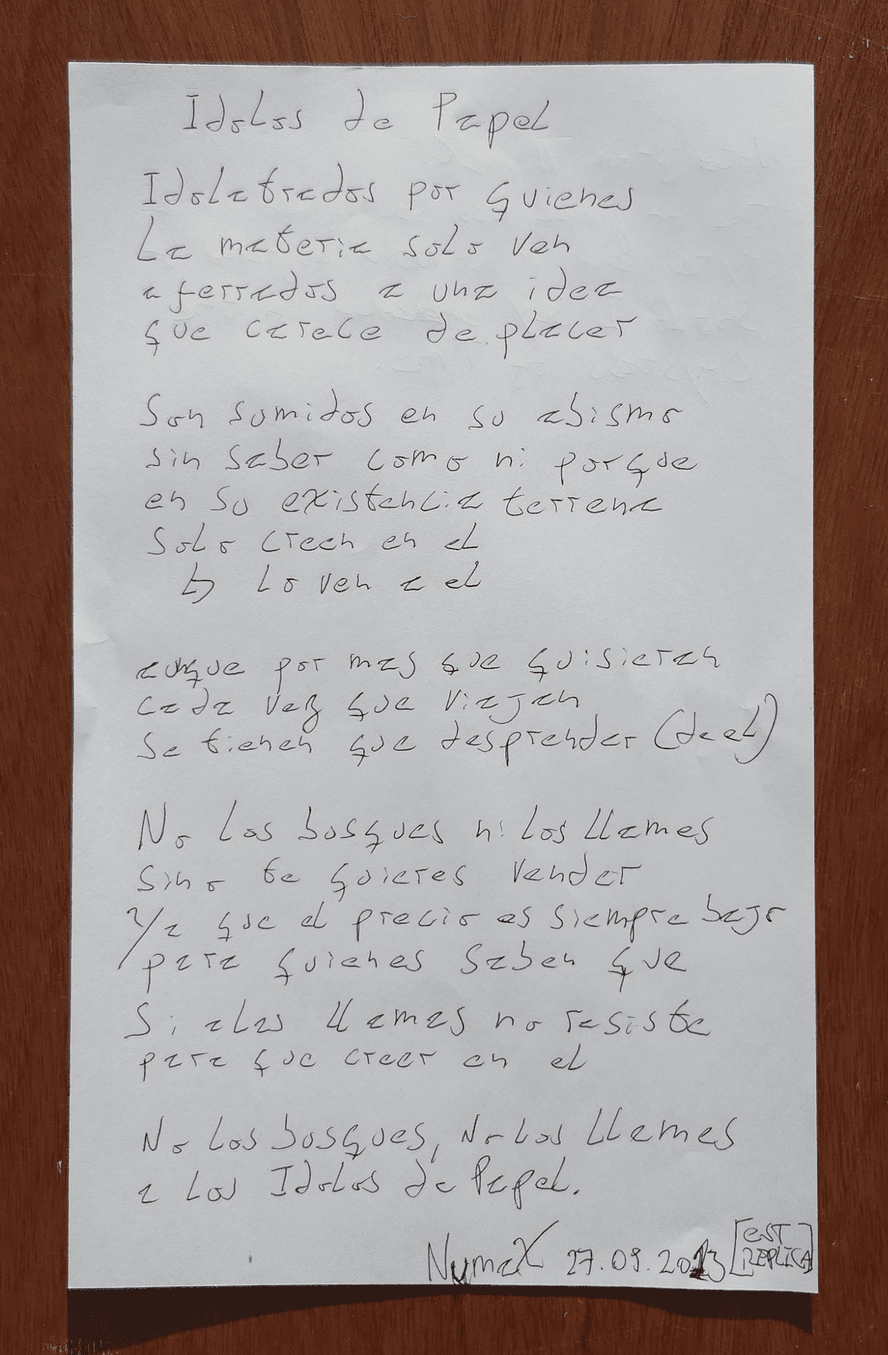 Idolos de Papel
Idolatrados por quienes
La materia solo ven
aferrados a una idea
que carece de placer
Son sumidos en su abismo
sin saber como ni porque
en su existencia terrena
Solo creen en el
↳ Lo ven a el
aunque por mas que quisieran
cada vez que viajan
se tienen que desprender (de el)
No los busques ni los llames
sino te quieres vender
Ya que el precio es siempre bajo
para quienes saben que
Si a las llamas no resiste
para que creer en el
No los busques, No los llames
a los Idolos de Papel.
NumaX 27.09.2013 [EST REPLICA]